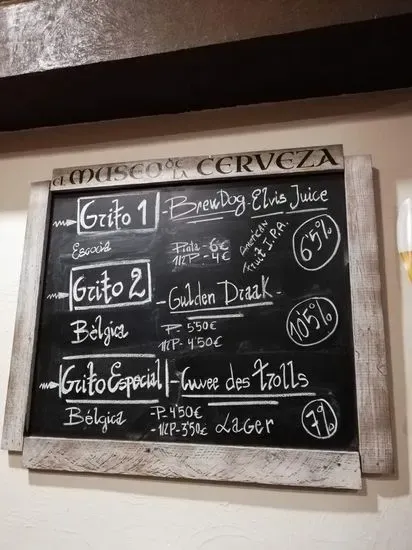 EL MUSEO DE LA CERVEZA
Grifo 1 - BrewDog - Elvis Juice
Escocia
Pinta - 6€
1/2 P - 4€
American
Fruit I.P.A.
6'5%
Grifo 2 - Gulden Draak -
Bèlgica
-P- 5'50€
1/2 P - 4'50€
10'5%
Grifo Especial - Cuvee des trolls
Bélgica
-P- 4'50€
-1/2 P - 3'50€
Lager
7%